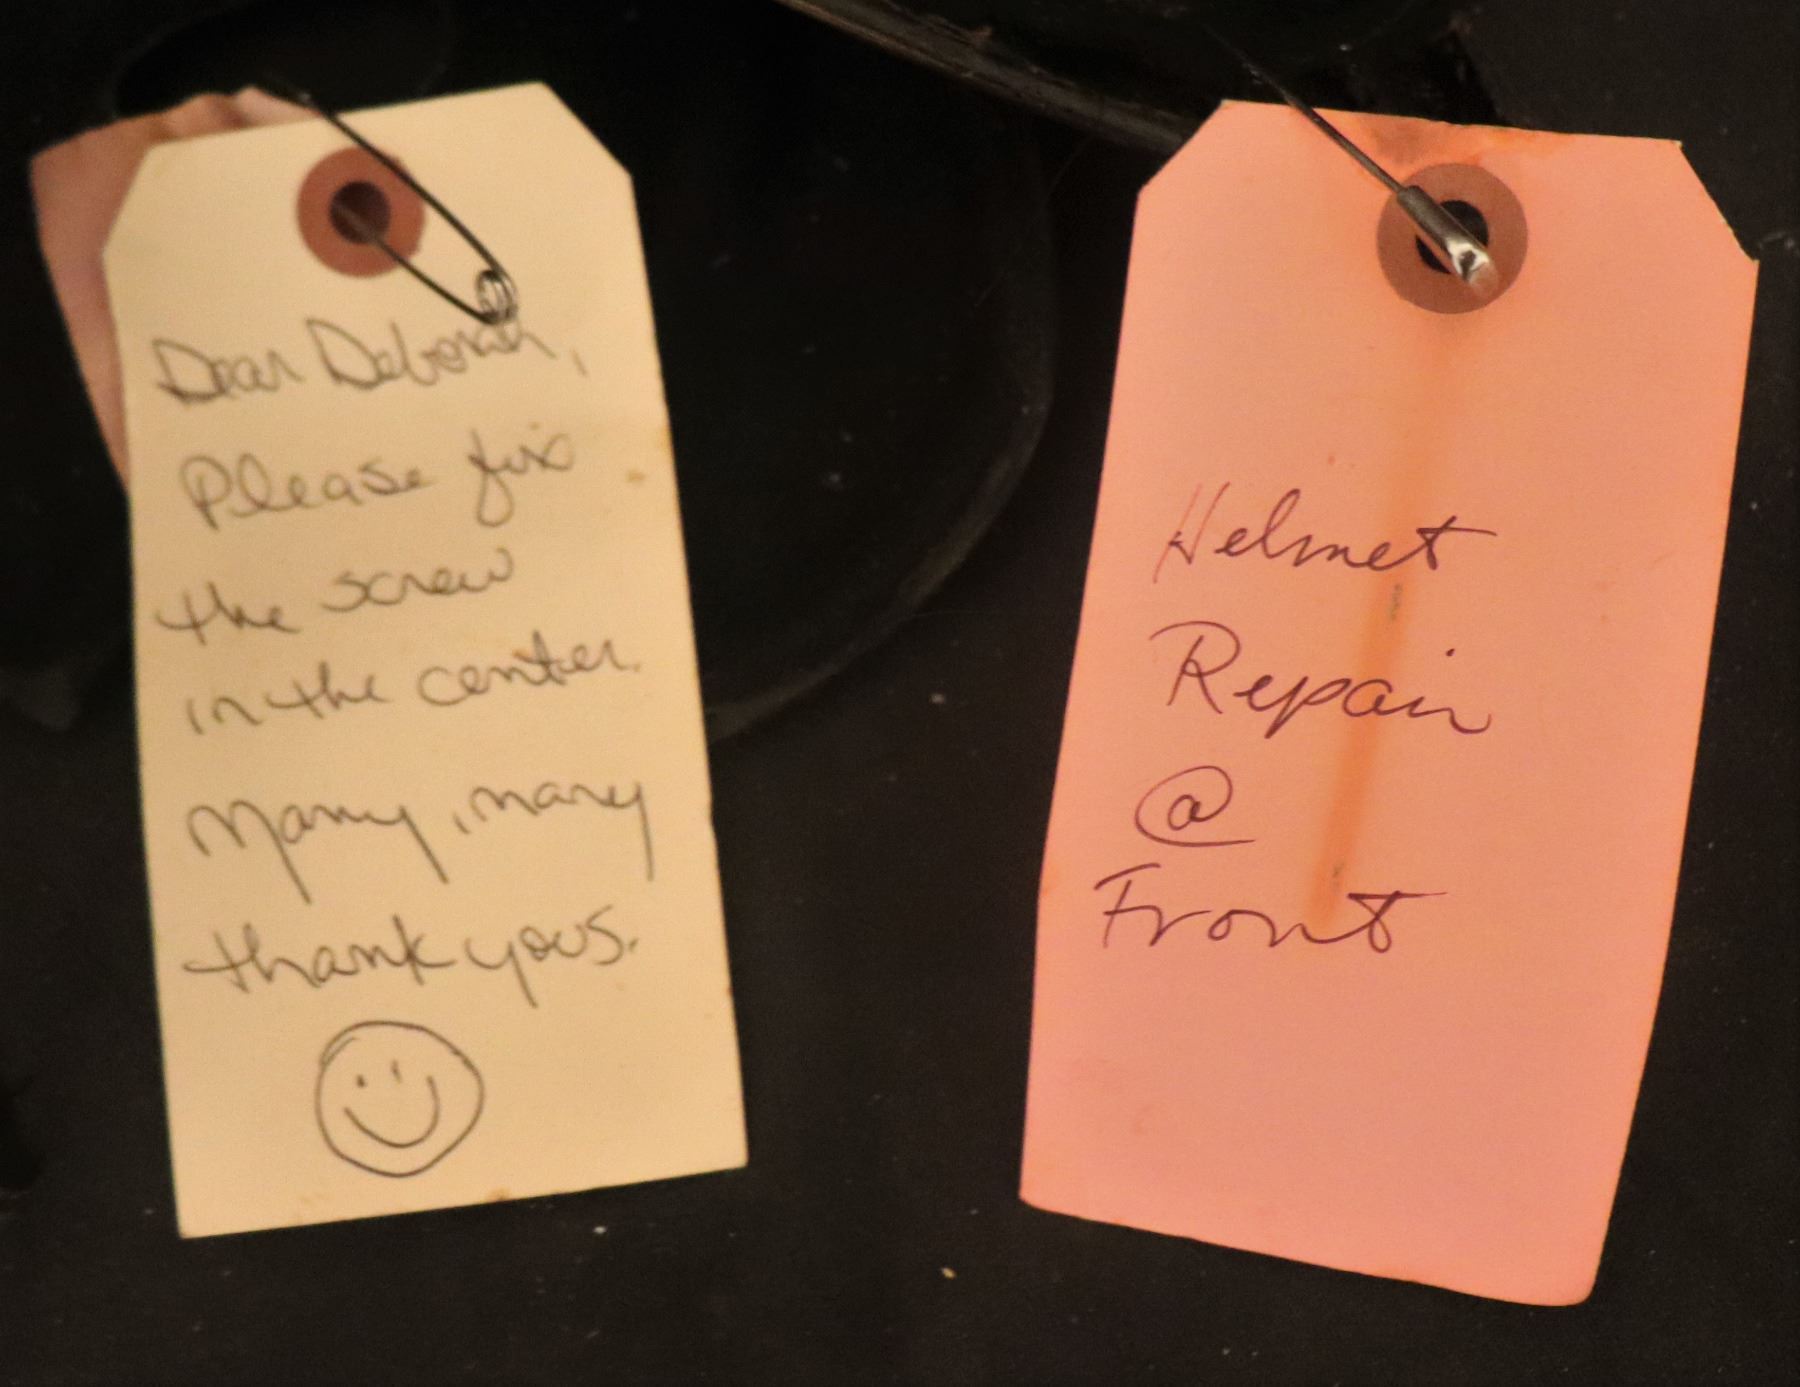 Dear Deborah,
Please fix
the screw
in the center.
Many, many
thank yous.
Helmet
Repair
@
Front